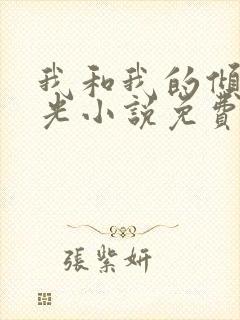 我和我的傾
光小説免費
張紫妍